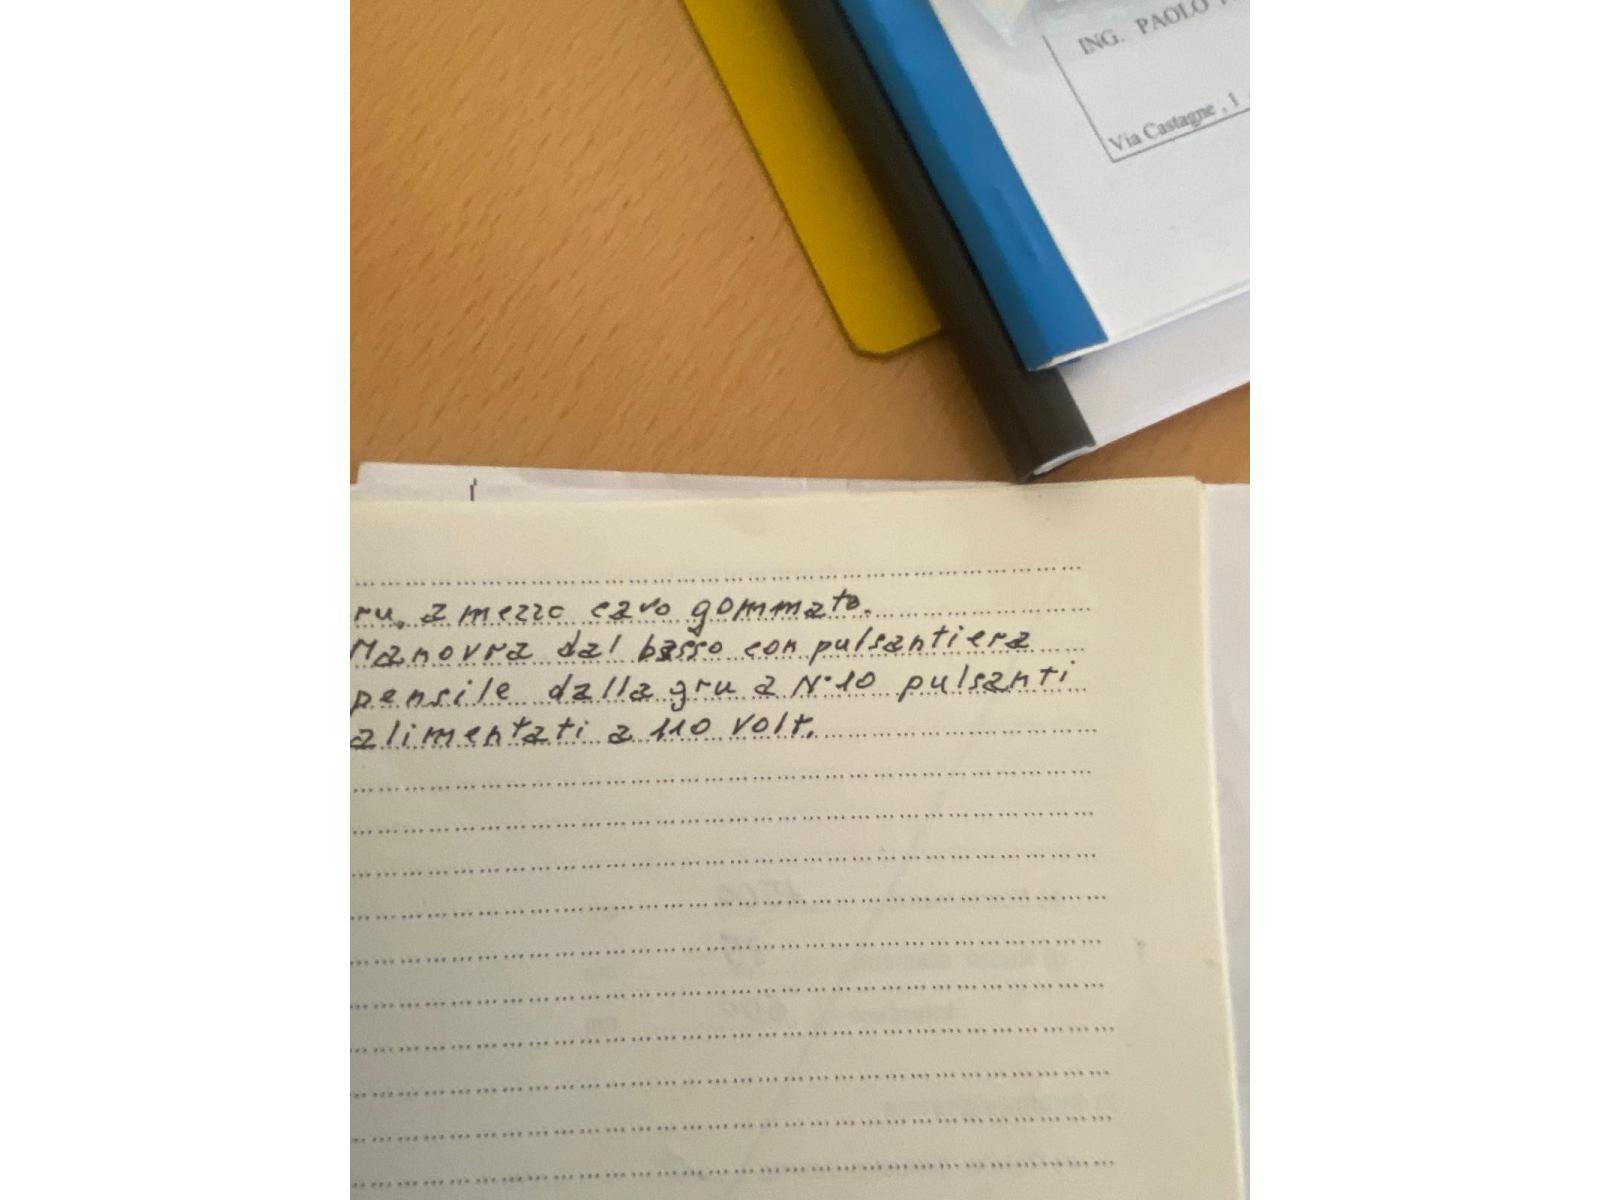 ING. PAOLO
Via Castagne , 1
ru. a mezzo cavo gommato.
Manovra dal basso con pulsantiera
pensile dalla gru a N°10 pulsanti
alimentati a 110 Volt.